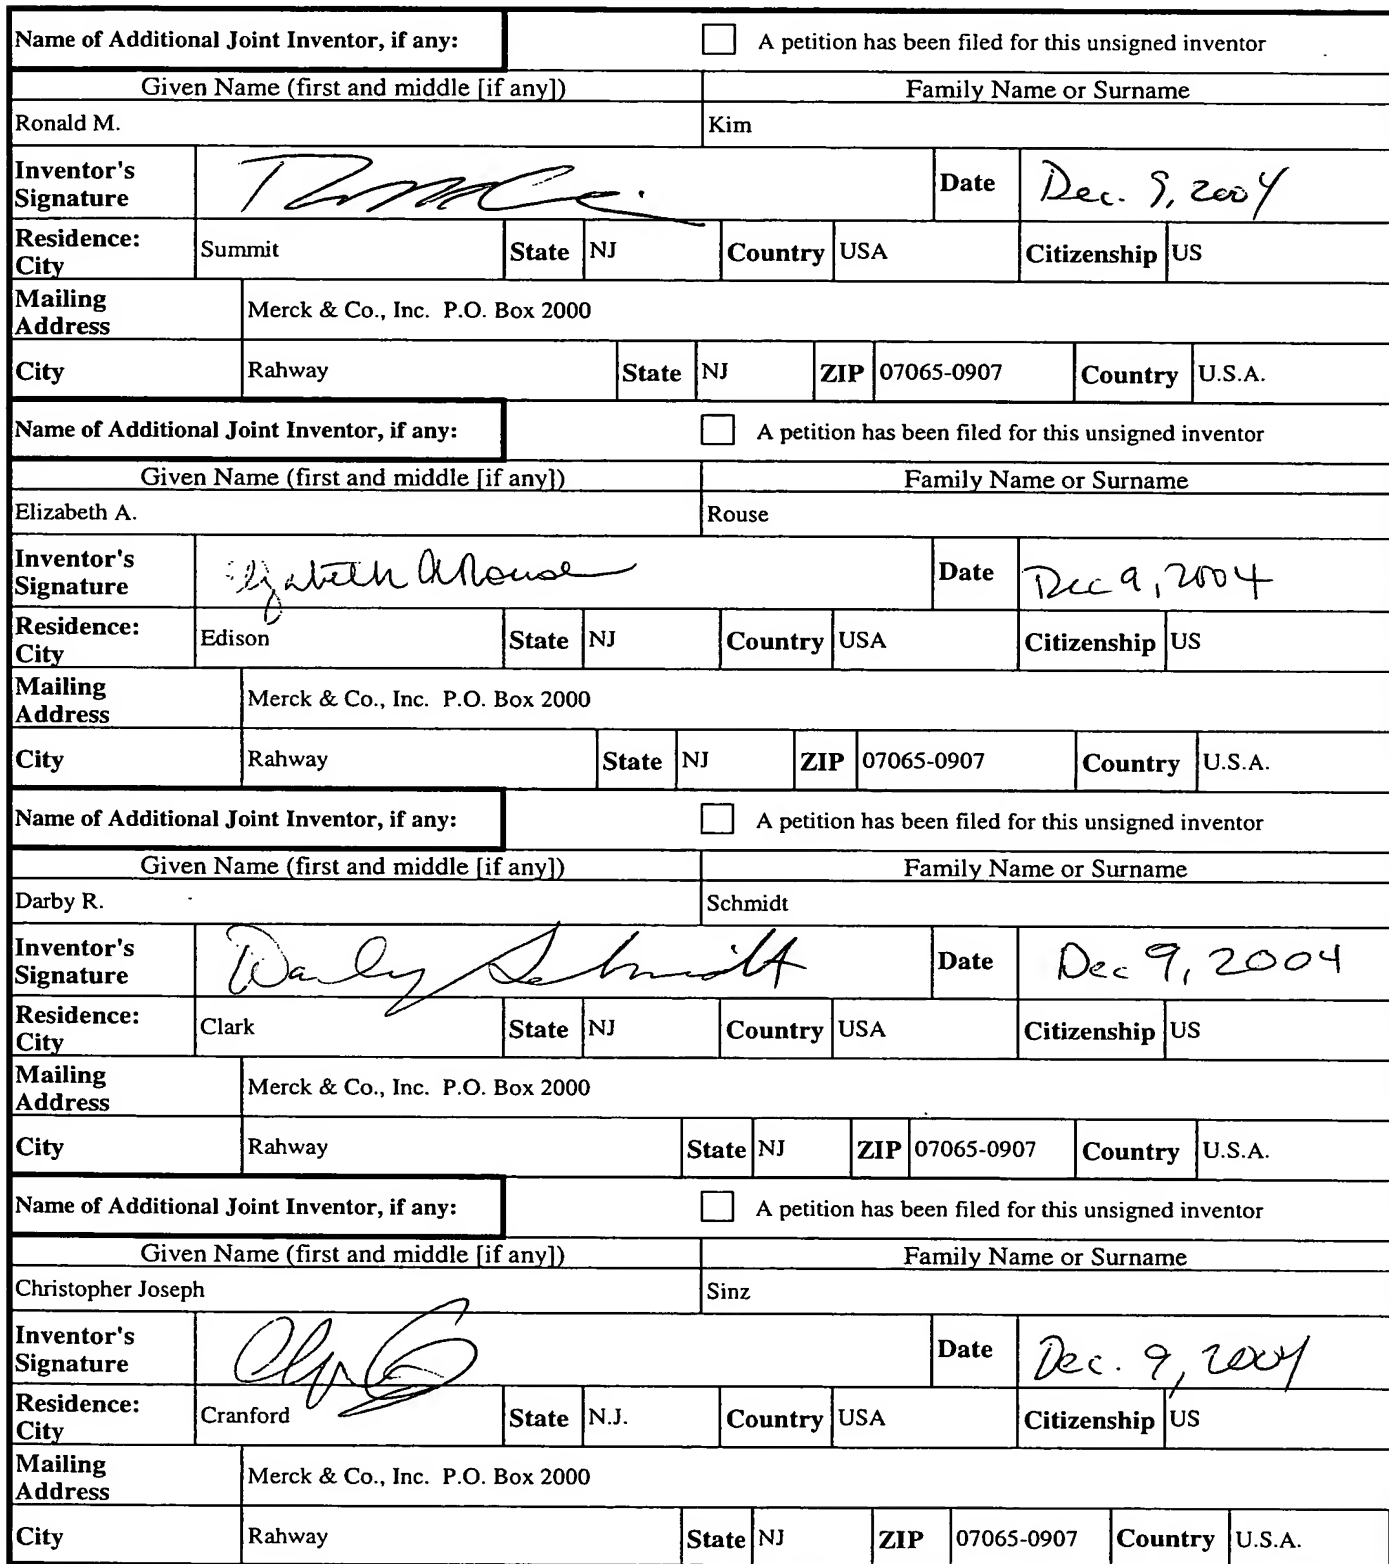 Name of Additional Joint Inventor, if any: A petition has been filed for this unsigned inventor
Given Name (first and middle [if any]) Family Name or Surname
Ronald M. Kim
Inventor's Signature Date Dec. 9, 2004
Residence: City Summit State NJ Country USA Citizenship US
Mailing Address Merck & Co., Inc. P.O. Box 2000
City Rahway State NJ ZIP 07065-0907 Country U.S.A.
Name of Additional Joint Inventor, if any: A petition has been filed for this unsigned inventor
Given Name (first and middle [if any]) Family Name or Surname
Elizabeth A. Rouse
Inventor's Signature Elizabeth A Rouse Date Dec 9, 2004
Residence: City Edison State NJ Country USA Citizenship US
Mailing Address Merck & Co., Inc. P.O. Box 2000
City Rahway State NJ ZIP 07065-0907 Country U.S.A.
Name of Additional Joint Inventor, if any: A petition has been filed for this unsigned inventor
Given Name (first and middle [if any]) Family Name or Surname
Darby R. Schmidt
Inventor's Signature Darby Schmidt Date Dec 9, 2004
Residence: City Clark State NJ Country USA Citizenship US
Mailing Address Merck & Co., Inc. P.O. Box 2000
City Rahway State NJ ZIP 07065-0907 Country U.S.A.
Name of Additional Joint Inventor, if any: A petition has been filed for this unsigned inventor
Given Name (first and middle [if any]) Family Name or Surname
Christopher Joseph Sinz
Inventor's Signature Date Dec. 9, 2004
Residence: City Cranford State N.J. Country USA Citizenship US
Mailing Address Merck & Co., Inc. P.O. Box 2000
City Rahway State NJ ZIP 07065-0907 Country U.S.A.